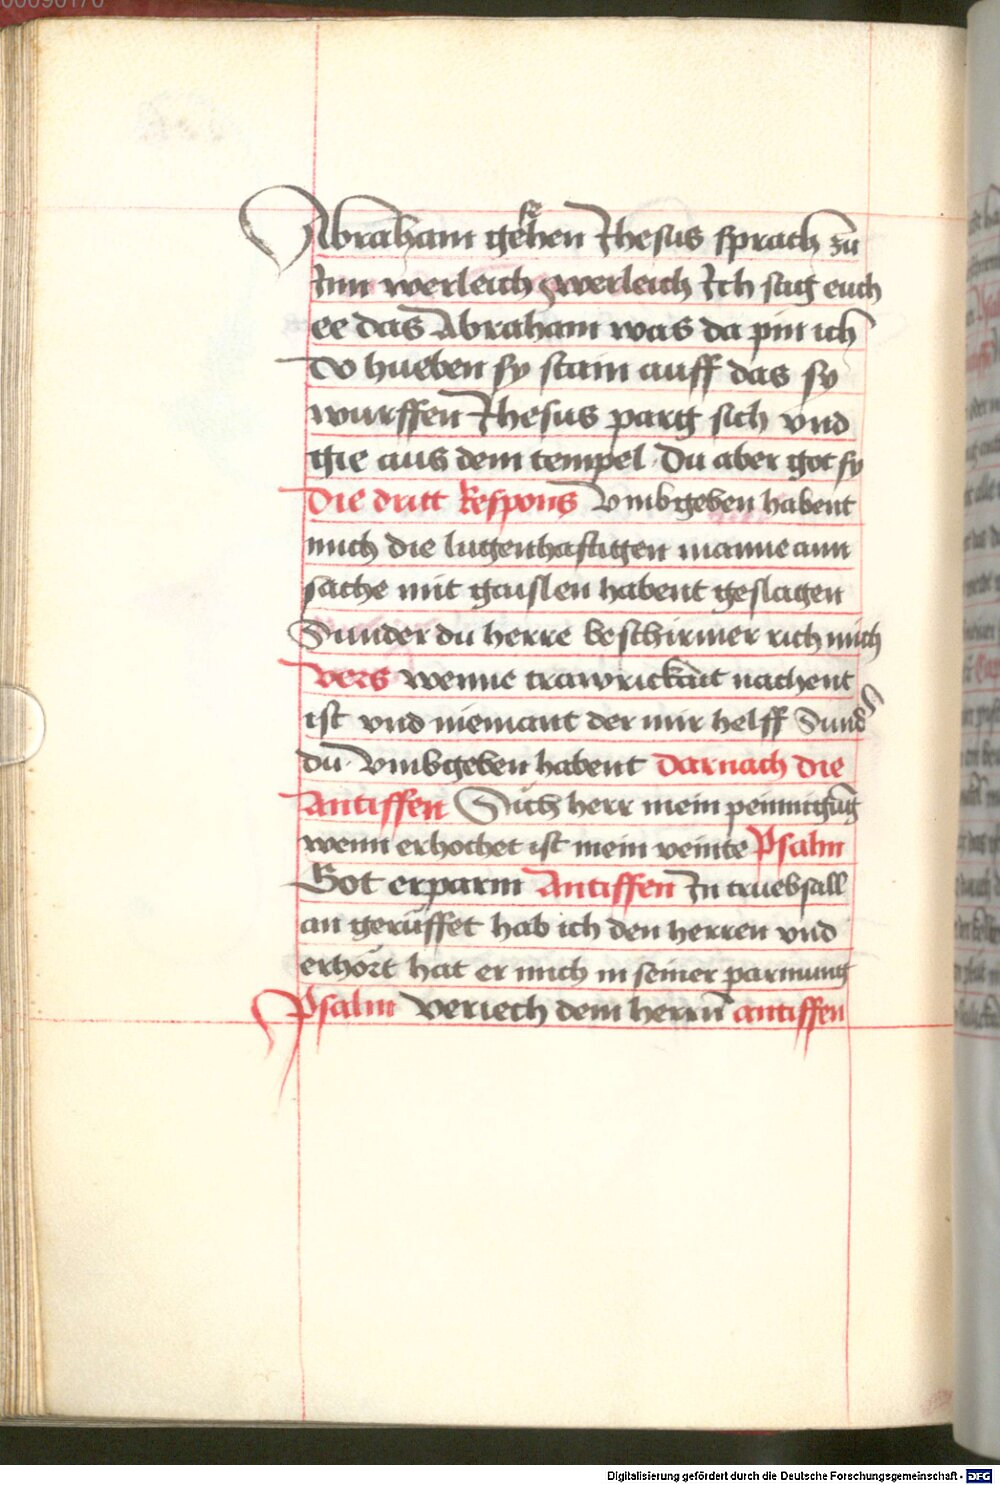 00090170
Abraham gesehen Ihesus sprach zu
Inn werleich werleich Ich sag euch
ee das Abraham was da pin ich
Do hueben sy stain auff das sy
wurffen Ihesus parg sich vnd
gie aus dem tempel Du aber got sy
Die dritt Respons Vmbgeben habent
mich die lugenhafftigen manne ann
sache mit gaislen habent geslagen
Sunder du herre beschirmer rich mich
Vers wenne trawrickait nachent
ist vnd niemant der mir helff Sund
du Vmbgeben habent Darnach die
Antiffen Sich herr mein peinnigung
wenn erhochet ist mein veinte Psalm
Got erparm Antiffen In truebsall
an gerüffet hab ich den herren vnd
erhört hat er mich in seiner parmung
Psalm Veriech dem herrn antiffen
Digitalisierung gefördert durch die Deutsche Forschungsgemeinschaft - DFG